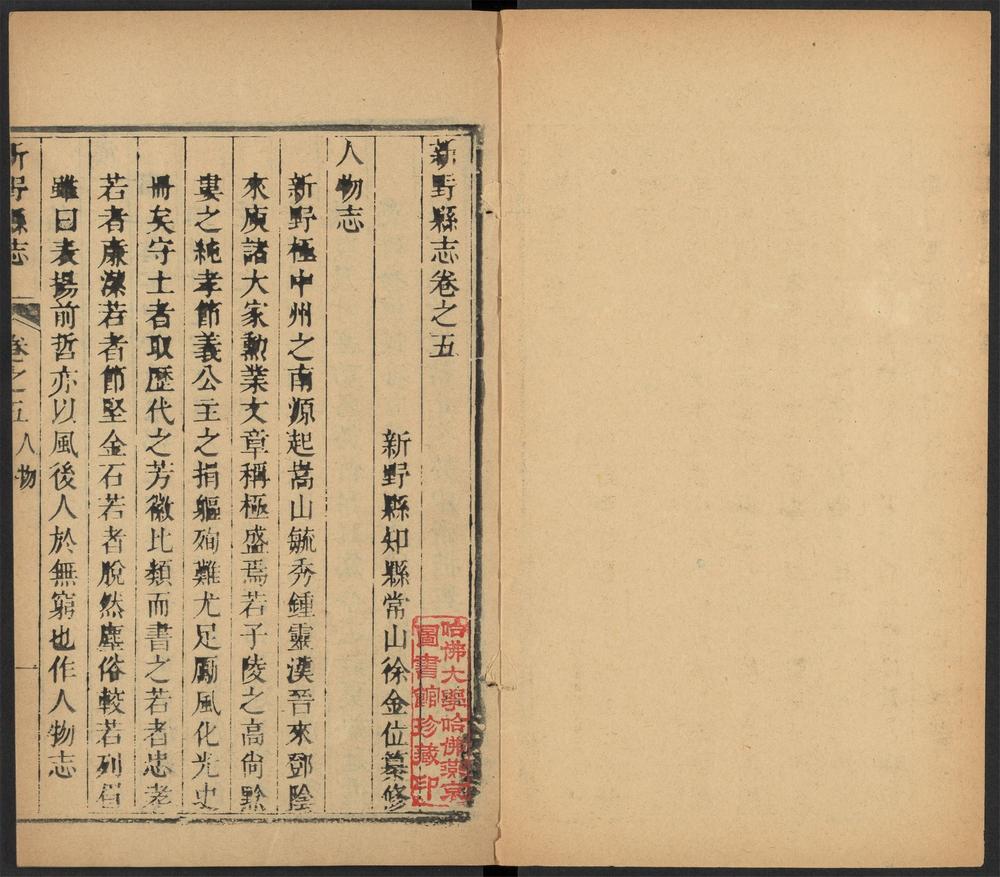 新野縣志卷之五
新野縣知縣常山徐金位纂修
人物志
新野極中州之南源起嵩山毓秀鍾靈漢晉來鄧陰
來庾諸大家勳業文章稱極盛焉若子陵之高尙黔
婁之純孝節義公主之捐軀殉難尤足勵風化光史
冊矣守土者取歷代之芳徽比類而書之若者忠孝
若者廉潔若者節堅金石若者脫然塵俗較若列眉
雖曰表揚前哲亦以風後人於無窮也作人物志
新野縣志
卷之五 人物
一
哈佛大學哈佛燕京
圖書館珍藏印